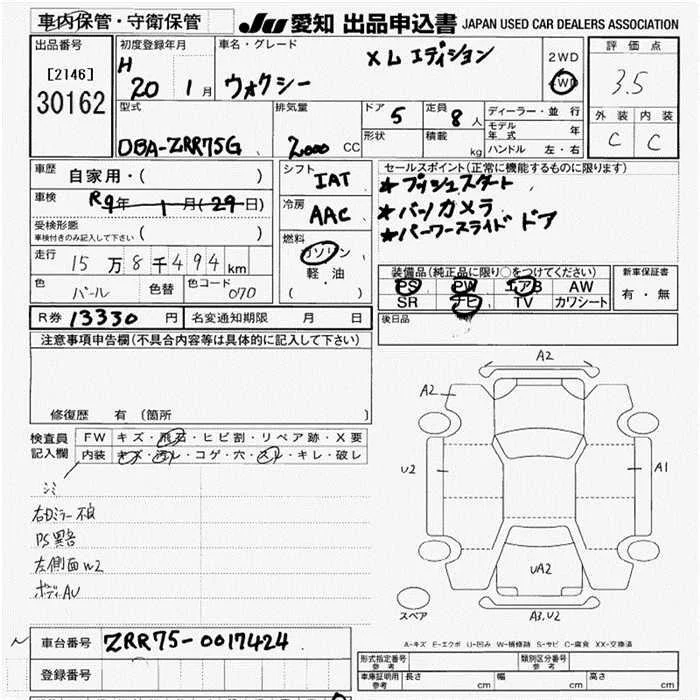 車内保管・守衛保管
JU 愛知 出品申込書 JAPAN USED CAR DEALERS ASSOCIATION
出品番号
[2146]
30162
初度登録年月
H 20 1月
車名・グレード
ウォクシー XLエディション
2WD
4WD
評価点
3.5
外装 内装
C C
型式
DBA-ZRR75G
排気量
2000 CC
ドア 5
形状
定員 8人
積載 kg
ディーラー・並行
モデル年式 年
ハンドル 左・右
車歴 自家用・( )
車検 R9年 1月(29日)
受検形態
車検付きのみ記入して下さい ( )
走行 15万8千494km
色 パール 色替 色コード 070
シフト IAT
冷房 AAC
燃料 ガソリン
軽・油
( )
セールスポイント(正常に機能するものに限ります)
★プッシュスタート
★バックカメラ
★パーワースライドドア
装備品(純正品に限り○をつけてください)
PS PW エアB AW
SR ナビ TV カワシート
新車保証書
有・無
R券 13330円 名変通知期限 月 日
後日品
注意事項申告欄(不具合内容等は具体的に記入して下さい)
修復歴 有(箇所 )
検査員記入欄
FW キズ・飛石・ヒビ割・リペア跡・X要
内装 キズ・汚レ・コゲ・穴・スレ・キレ・破レ
シミ
右Dミラー不良
PS異音
左側面W2
ボディAU
A2
A2
U2
A1
UA2
A3.U2
スペア
A-キズ E-エクボ U-凹み W-補修跡 S-サビ C-腐食 XX-交換済
車台番号 ZRR75-0017424
登録番号
型式指定番号 参考
類別区分番号 参考
車庫証明用 参考 長さ cm 幅 cm 高さ cm